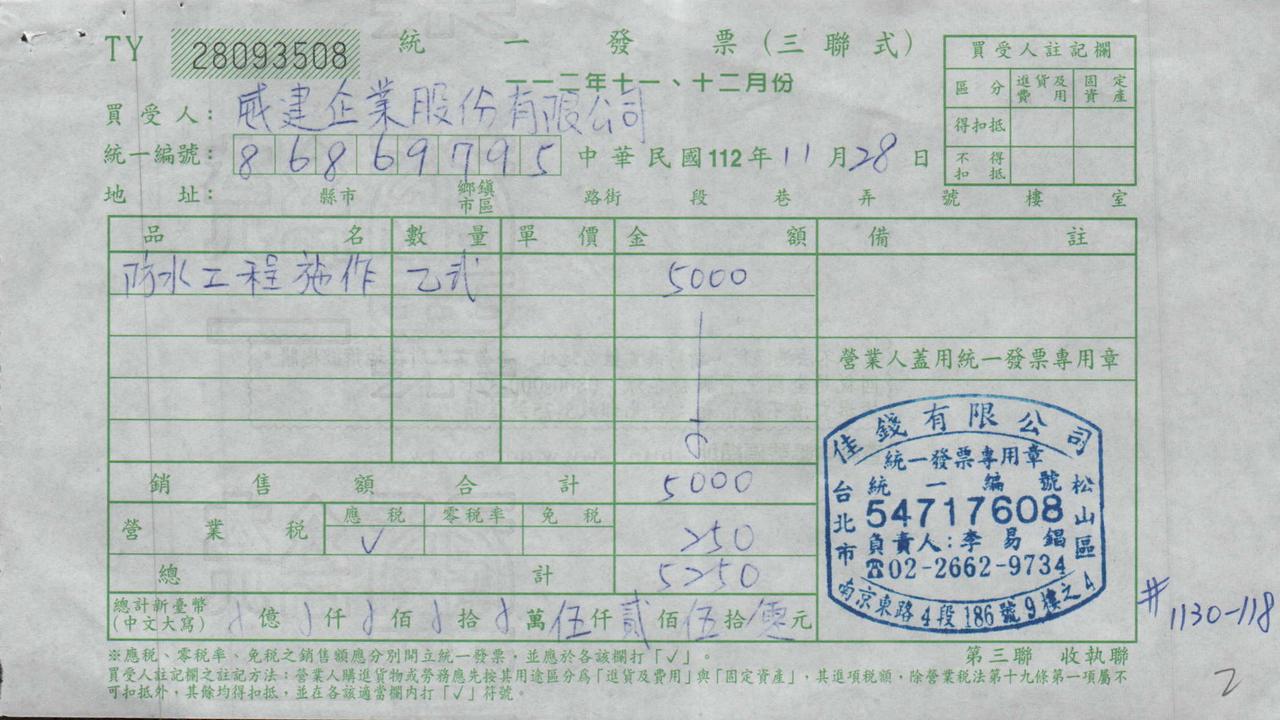 TY 28093508 統一發票(三聯式)
一一二年十一、十二月份
買受人註記欄
區分 進貨及費用 固定資產
得扣抵
不得扣抵
買受人: 威建企業股份有限公司
統一編號: 86869795 中華民國112年11月28日
地址: 縣市 鄉鎮市區 路街 段 巷 弄 號 樓 室
品名 數量 單價 金額 備註
防水工程施作 乙式 5000
營業人蓋用統一發票專用章
銷售額合計 5000
營業稅 應稅 零稅率 免稅
✓ 250
總計 5250
總計新臺幣(中文大寫) 億 仟 佰 拾 萬 伍仟 貳佰 伍拾 零元
佳錢有限公司
統一發票專用章
台北市 統一編號 松山區
54717608
負責人:李易錩
☎02-2662-9734
南京東路4段186號9樓之4
#1130-118
※應稅、零稅率、免稅之銷售額應分別開立統一發票,並應於各該欄打「✓」。
第三聯 收執聯
買受人註記欄之註記方法:營業人購進貨物或勞務應先按其用途區分為「進貨及費用」與「固定資產」,其進項稅額,除營業稅法第十九條第一項屬不
可扣抵外,其餘均得扣抵,並在各該適當欄內打「✓」符號。
2